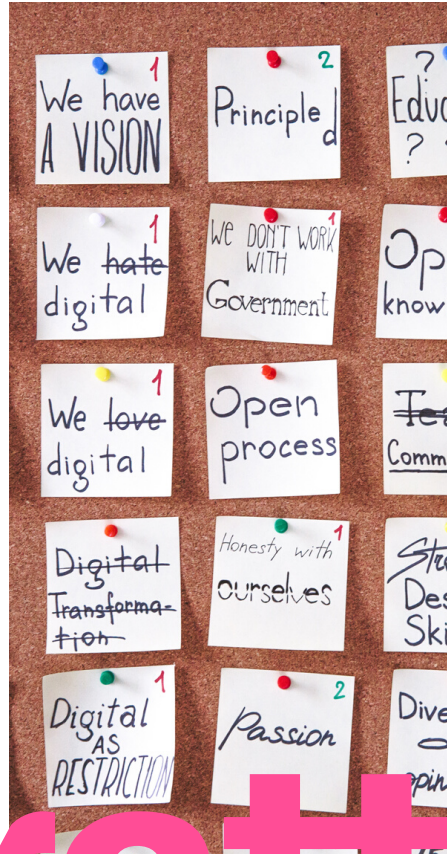 1
We have
A VISION
2
Principle
d
?
?
1
We hate
digital
1
We DON'T WORK
WITH
Government
Op
know
1
We love
digital
Open
process
Comm
Digital
Transforma-
tion
1
Honesty with
ourselves
Des
Ski
1
Digital
AS
RESTRICTION
2
Passion
Dive